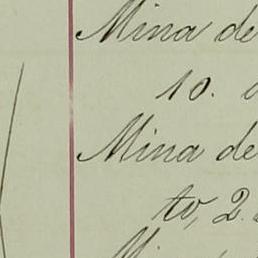 Mina de
10.
Mina de
to, 2.